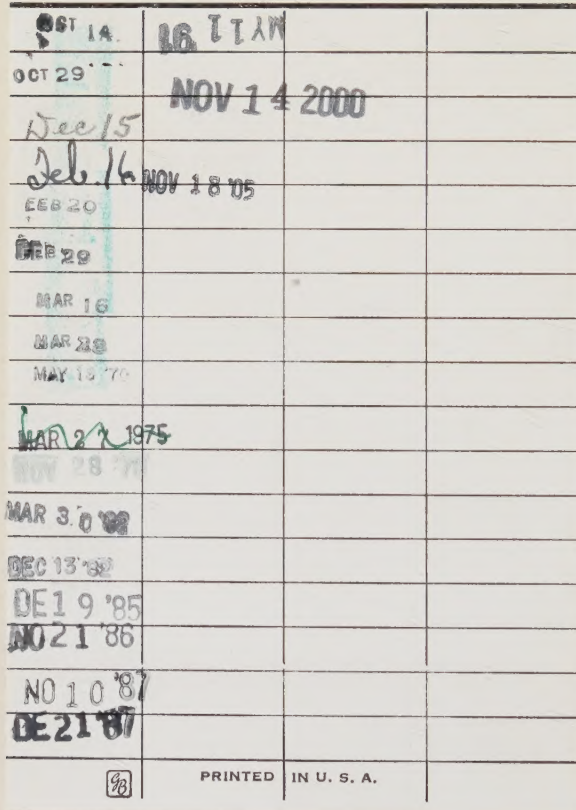 OCT 14
OCT 29
Dec 15
Feb. 16
FEB 20
FEB 29
MAR 16
MAR 29
MAY 18 '70
MAR 27 1975
NOV 28
MAR 30 '82
DEC 13 '82
DE 19 '85
NO 21 '86
NO 10 '87
DE 21 '87
MY 11 '91
NOV 14 2000
NOV 18 '05
GB
PRINTED IN U. S. A.